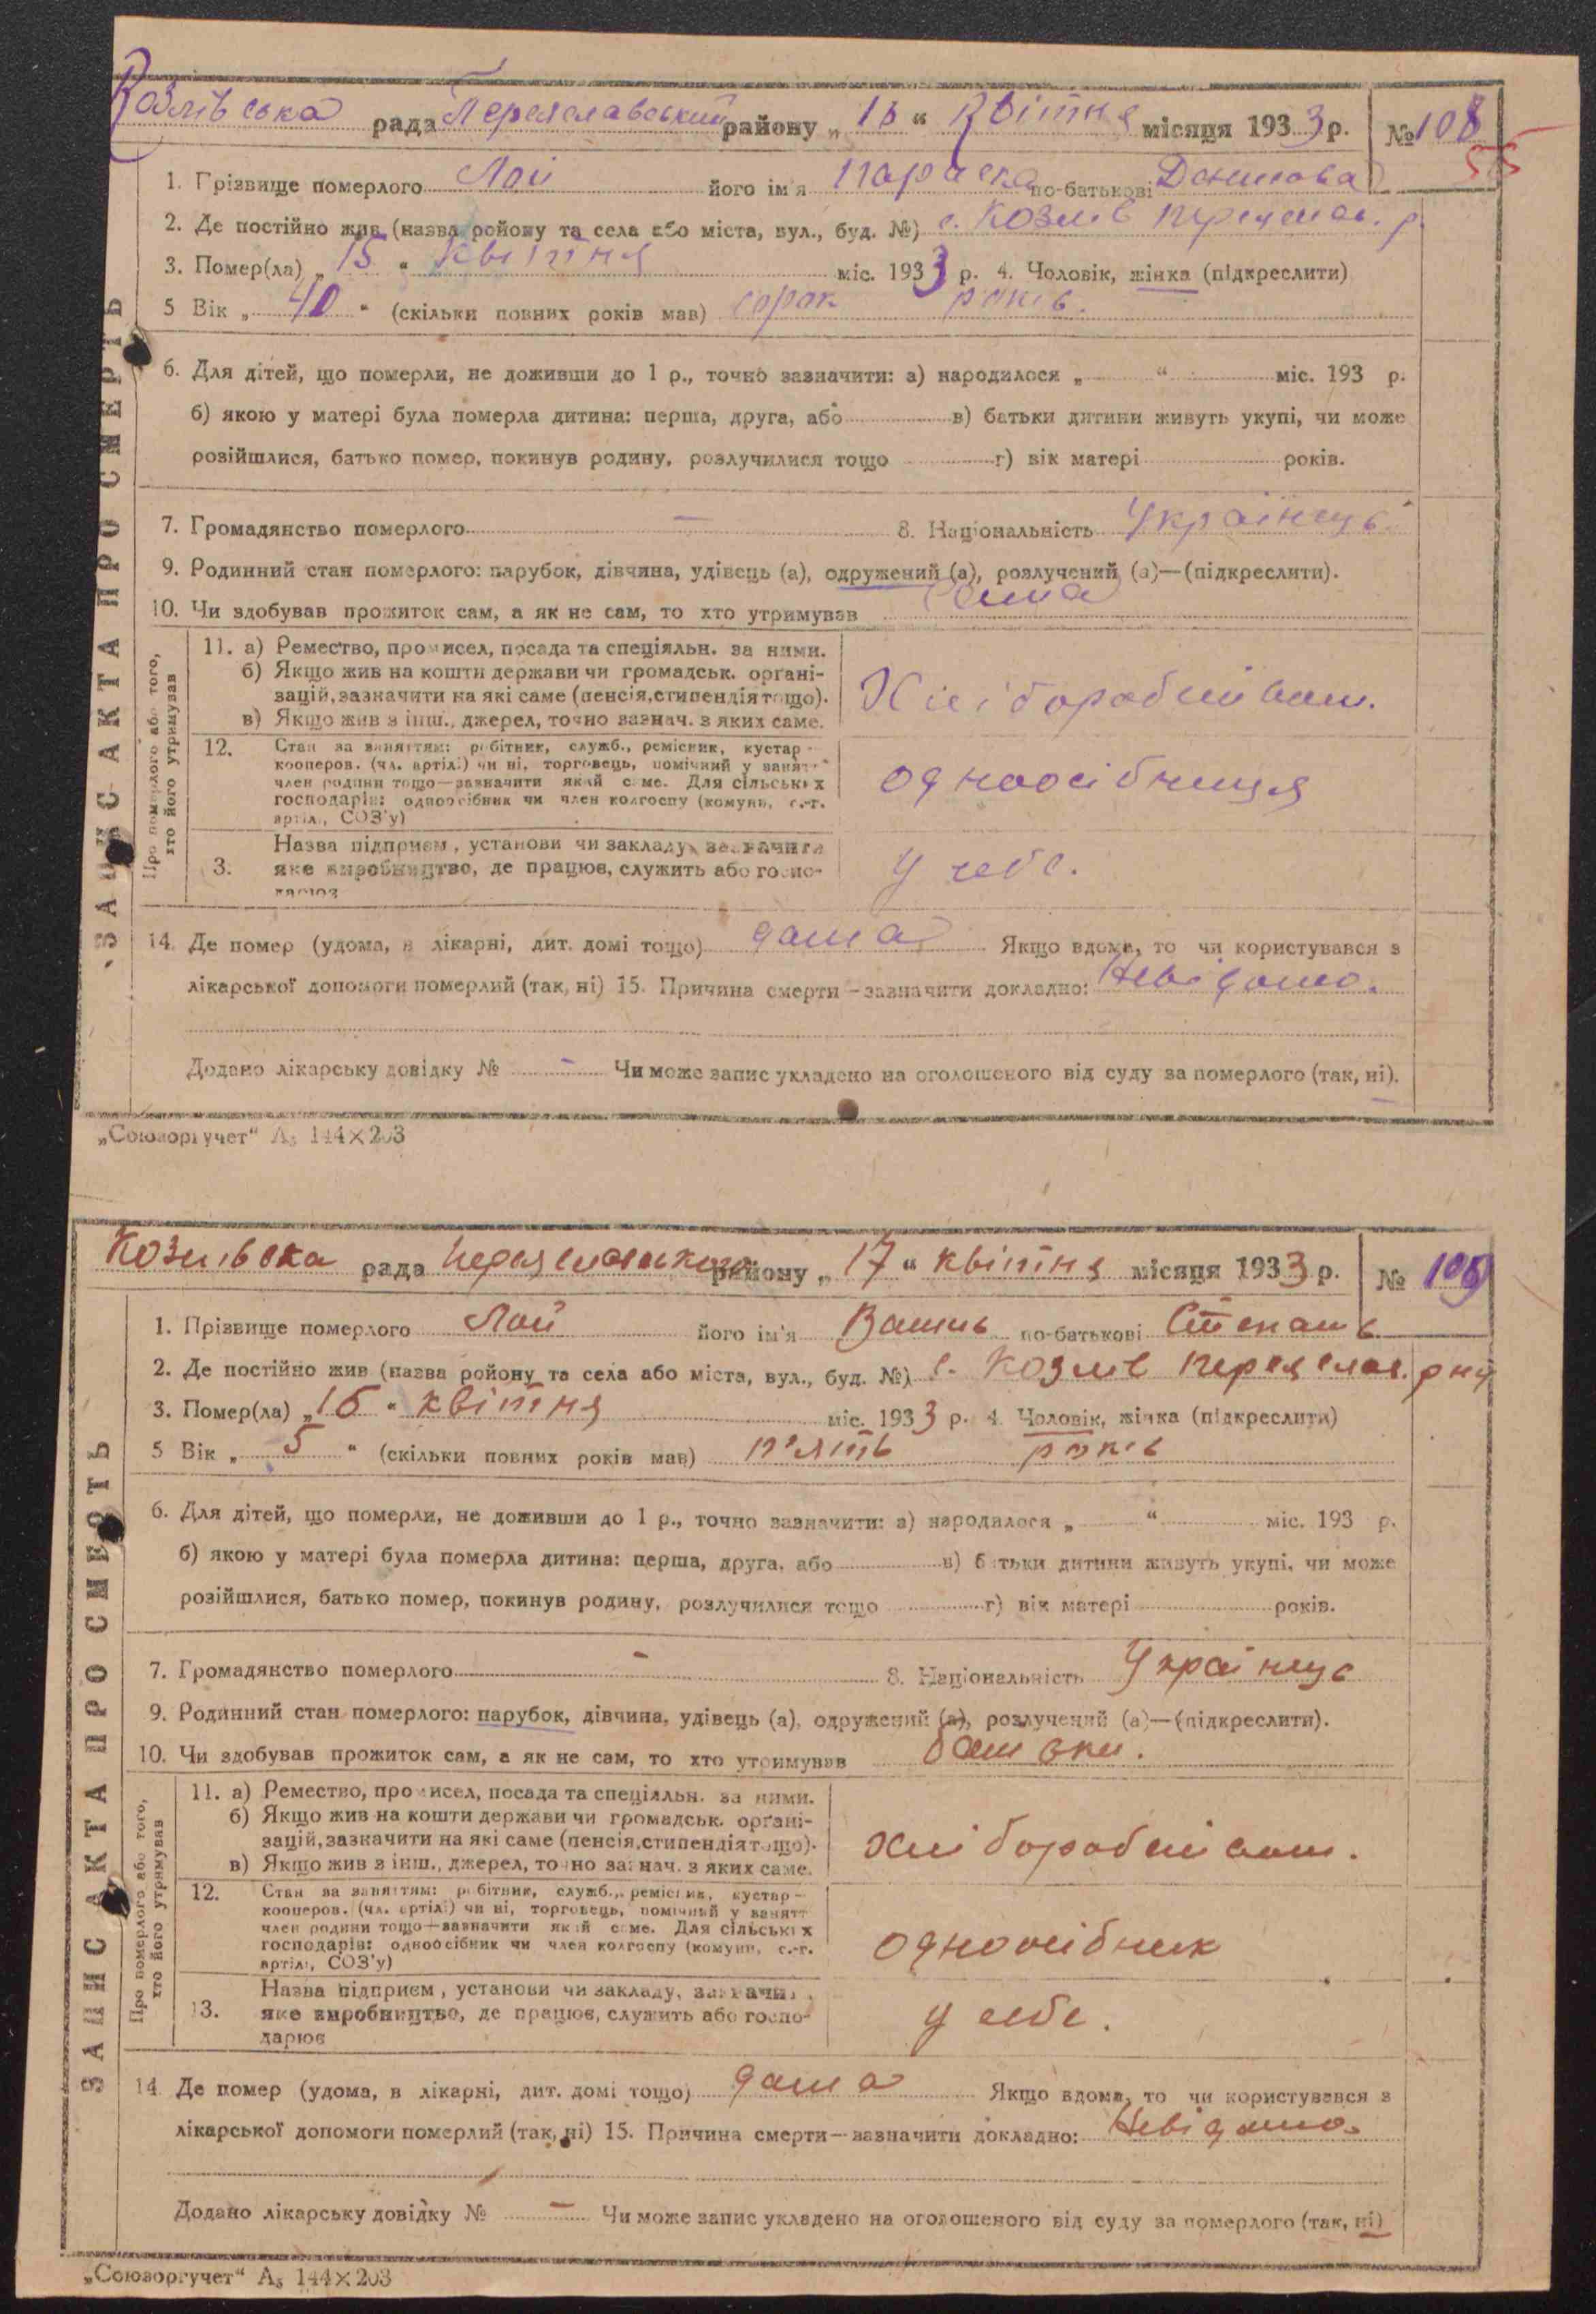 Козлівська рада Переяславський району „ 16 “ Квітня місяця 1933 р. № 108
55
1. Прізвище померлого Лой його ім'я Параска по-батькові Данилова
2. Де постійно жив (назва ройону та села або міста, вул., буд. №) с. Козлів Переяслав. р.
3. Помер(ла) „ 15 “ квітня міс. 1933 р. 4. Чоловік, жінка (підкреслити)
5 Вік „ 40 “ (скільки повних років мав) сорок років.
6. Для дітей, що померли, не доживши до 1 р., точно зазначити: а) народилося „ “ міс. 193 р.
б) якою у матері була померла дитина: перша, друга, або в) батьки дитини живуть укупі, чи може
розійшлися, батько помер, покинув родину, розлучилися тощо г) вік матері років.
7. Громадянство померлого – 8. Національність Українць
9. Родинний стан померлого: парубок, дівчина, удівець (а), одружений (а), розлучений (а)—(підкреслити).
10. Чи здобував прожиток сам, а як не сам, то хто утримував сама
ЗАПИС АКТА ПРО СМЕРТЬ
Про померлого або того, хто його утримував
11. а) Ремество, промисел, посада та спеціяльн. за ними.
б) Якщо жив на кошти держави чи громадськ. органі-
зацій, зазначити на які саме (пенсія, стипендія тощо).
в) Якщо жив з інш., джерел, точно зазнач. з яких саме.
Хліборобством.
12. Стан за заняттям: робітник, служб., ремісник, кустар-
кооперов. (чл. артілі) чи ні, торговець, помічний у занятт
член родини тощо—зазначити який саме. Для сільських
господарів: одноосібник чи член колгоспу (комуни, с.-г.
артілі, СОЗ'у)
одноосібниця
3. Назва підприєм, установи чи закладу, зазначити
яке виробництво, де працює, служить або госпо-
дарює
у себе.
14. Де помер (удома, в лікарні, дит. домі тощо) дома Якщо вдома, то чи користувався з
лікарської допомоги померлий (так, ні) 15. Причина смерти—зазначити докладно: Невідомо.
Додано лікарську довідку № – Чи може запис укладено на оголошеного від суду за померлого (так, ні).
„Союзоргучет“ А₅ 144×203
Козлівська рада Переяславського району „ 17 “ квітня місяця 1933 р. № 109
1. Прізвище померлого Лой його ім'я Василь по-батькові Степанів
2. Де постійно жив (назва ройону та села або міста, вул., буд. №) с. Козлів Переяслав. р-ну
3. Помер(ла) „ 16 “ квітня міс. 1933 р. 4. Чоловік, жінка (підкреслити)
5 Вік „ 5 “ (скільки повних років мав) п'ять років
6. Для дітей, що померли, не доживши до 1 р., точно зазначити: а) народилося „ “ міс. 193 р.
б) якою у матері була померла дитина: перша, друга, або в) батьки дитини живуть укупі, чи може
розійшлися, батько помер, покинув родину, розлучилися тощо г) вік матері років.
7. Громадянство померлого – 8. Національність Українць
9. Родинний стан померлого: парубок, дівчина, удівець (а), одружений (а), розлучений (а)—(підкреслити).
10. Чи здобував прожиток сам, а як не сам, то хто утримував батьки.
ЗАПИС АКТА ПРО СМЕРТЬ
Про померлого або того, хто його утримував
11. а) Ремество, промисел, посада та спеціяльн. за ними.
б) Якщо жив на кошти держави чи громадськ. органі-
зацій, зазначити на які саме (пенсія, стипендія тощо).
в) Якщо жив з інш., джерел, точно зазнач. з яких саме.
Хліборобством.
12. Стан за заняттям: робітник, служб., ремісник, кустар-
кооперов. (чл. артілі) чи ні, торговець, помічний у занятт
член родини тощо—зазначити який саме. Для сільських
господарів: одноосібник чи член колгоспу (комуни, с.-г.
артілі, СОЗ'у)
одноосібник
13. Назва підприєм, установи чи закладу, зазначит,
яке виробництво, де працює, служить або госпо-
дарює
у себе.
14. Де помер (удома, в лікарні, дит. домі тощо) дома Якщо вдома, то чи користувався з
лікарської допомоги померлий (так, ні) 15. Причина смерти—зазначити докладно: Невідомо.
Додано лікарську довідку № – Чи може запис укладено на оголошеного від суду за померлого (так, ні)
„Союзоргучет“ А₅ 144×203